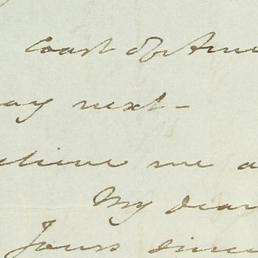 Coast of Ame
ay next -
elieve me a
My dear
Yours since